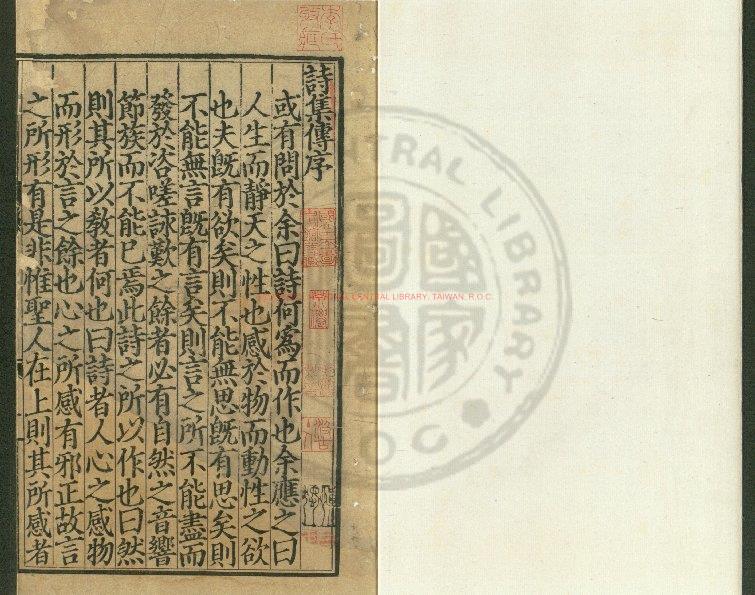 詩集傳序
或有問於余曰詩何爲而作也余應之曰
人生而靜天之性也感於物而動性之欲
也夫既有欲矣則不能無思既有思矣則
不能無言既有言矣則言之所不能盡而
發於咨嗟詠歎之餘者必有自然之音響
節族而不能已焉此詩之所以作也曰然
則其所以教者何也曰詩者人心之感物
而形於言之餘也心之所感有邪正故言
之所形有是非惟聖人在上則其所感者
NATIONAL CENTRAL LIBRARY, TAIWAN, R.O.C.
CENTRAL LIBRARY
國家圖書